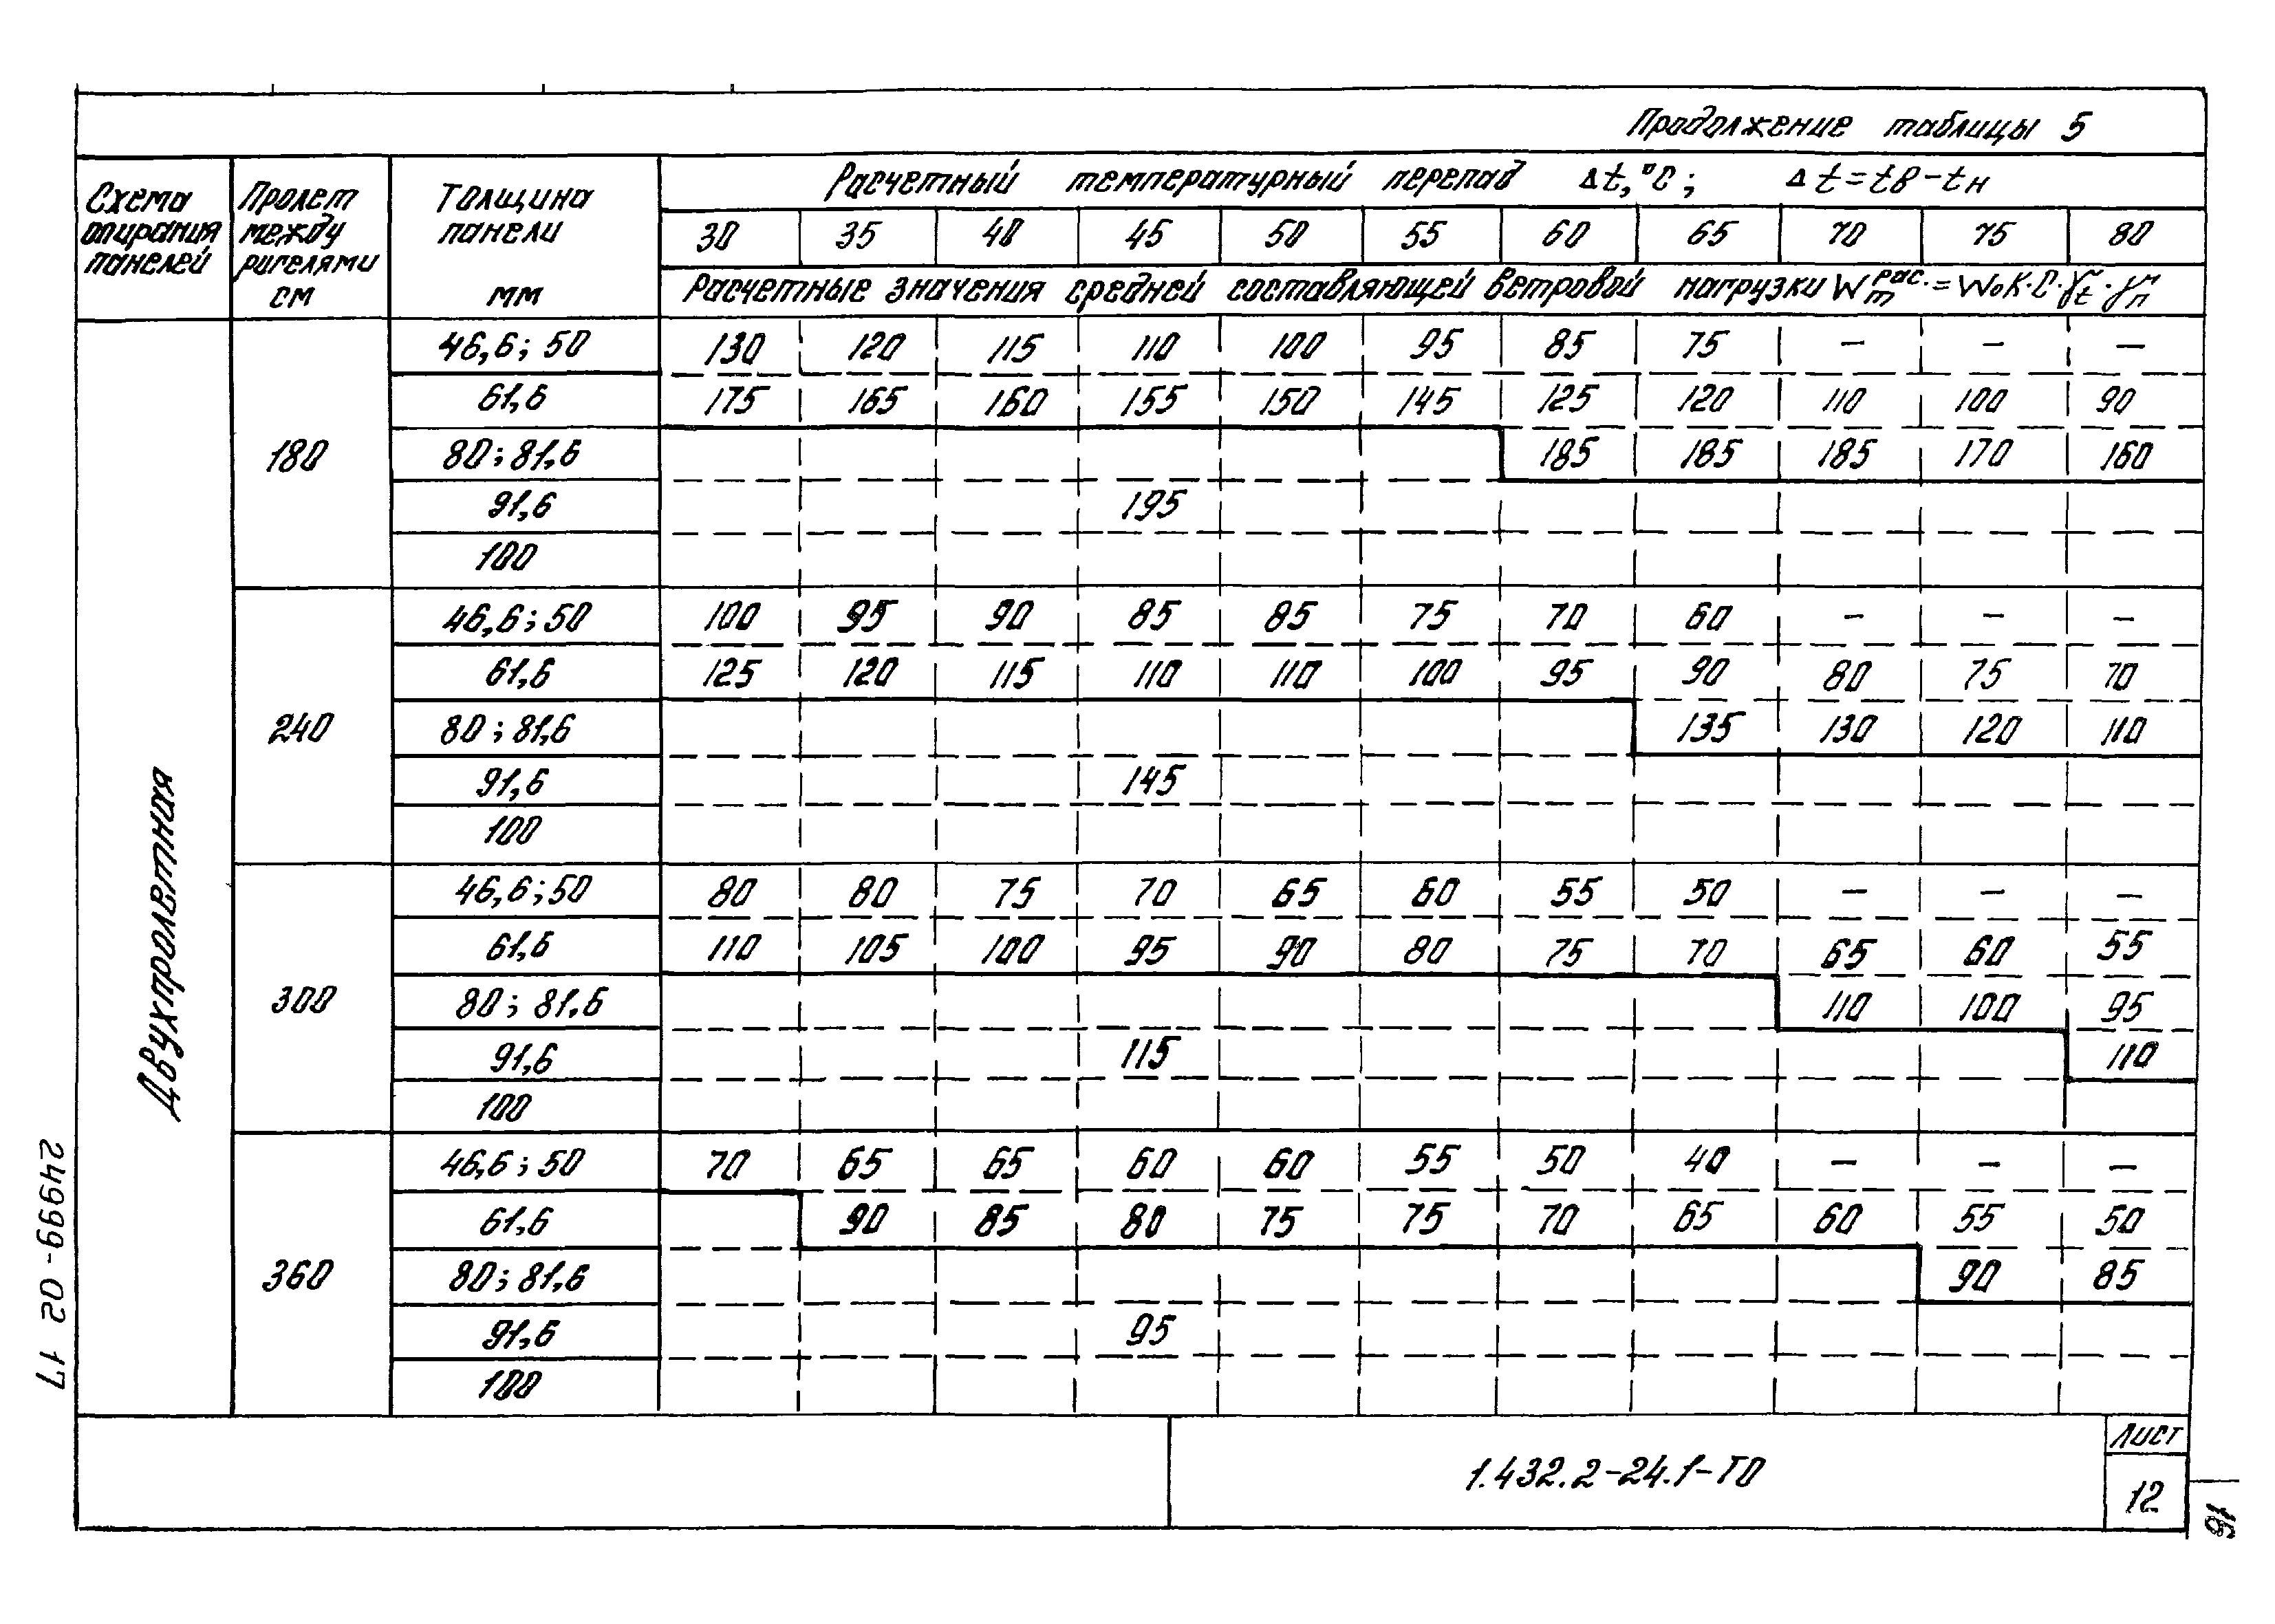 Продолжение таблицы 5
Схема опирания панелей
Пролет между ригелями см
Толщина панели мм
Расчетный температурный перепад Δt,°C; Δt=tв-tн
30 35 40 45 50 55 60 65 70 75 80
Расчетные значения средней составляющей ветровой нагрузки Wm рас.=W₀K·C·γt·γn
Двухпролетная
180
46,6; 50 130 120 115 110 100 95 85 75 – – –
61,6 175 165 160 155 150 145 125 120 110 100 90
80; 81,6 185 185 185 170 160
91,6 195
100
240
46,6; 50 100 95 90 85 85 75 70 60 – – –
61,6 125 120 115 110 110 100 95 90 80 75 70
80; 81,6 135 130 120 110
91,6 145
100
300
46,6; 50 80 80 75 70 65 60 55 50 – – –
61,6 110 105 100 95 90 80 75 70 65 60 55
80; 81,6 110 100 95
91,6 115 110
100
360
46,6; 50 70 65 65 60 60 55 50 40 – – –
61,6 90 85 80 75 75 70 65 60 55 50
80; 81,6 90 85
91,6 95
100
1.432.2-24.1-ТО
Лист
12
24999-02 17
16